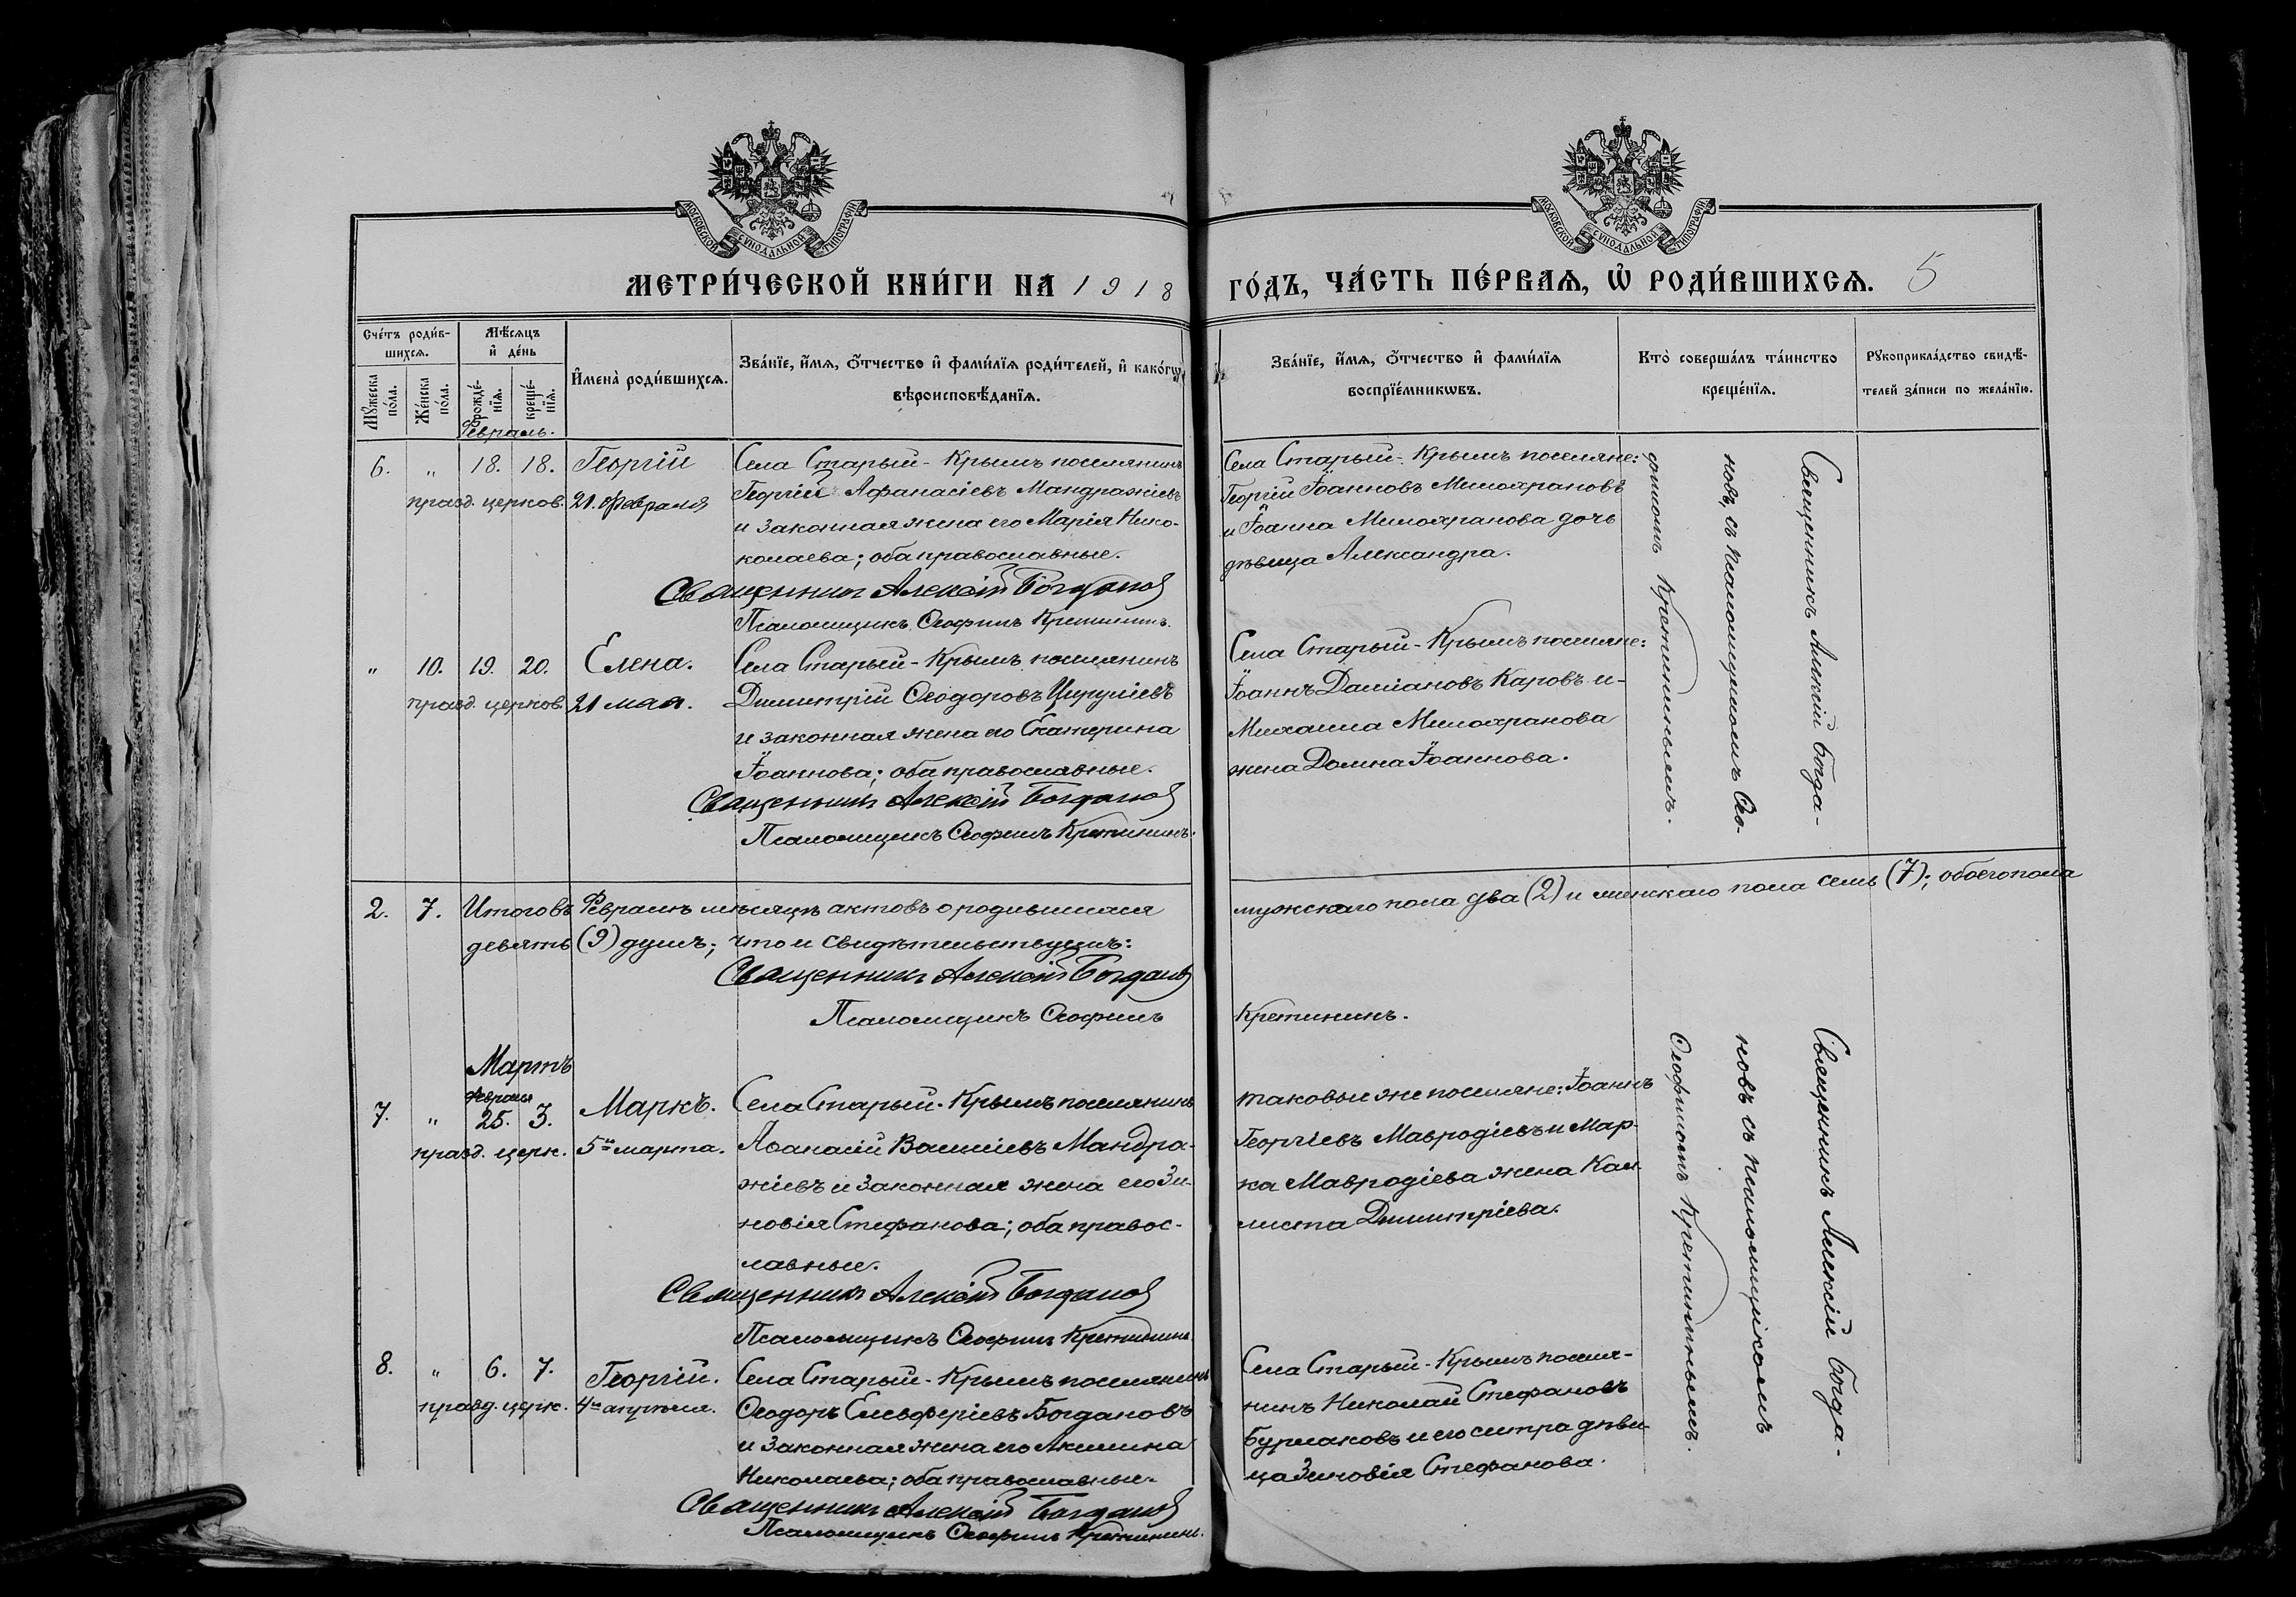 МОСКОВСКОЙ СѴНОДАЛЬНОЙ ТИПОГРАФІИ
МЕТРИ́ЧЕСКОЙ КНИ́ГИ НА 1918
Сче́тъ роди́в-
шихсѧ.
Мѣ́сѧцъ
и҆ де́нь
Мꙋ́жеска
по́ла.
Же́нска
по́ла.
рожде́-
нїѧ.
креще́-
нїѧ.
И҆мена̀ роди́вшихсѧ.
Зва́нїе, и҆́мѧ, ѻ҆́тчество и҆ фами́лїѧ роди́телей, и҆ како́гѡ
вѣроисповѣ́данїѧ.
Февраль.
6. " 18. 18. Георгій
празд. церков. 21. Февраля
Села Старый-Крымъ поселянинъ
Георгій Афанасіевъ Мандражіевъ
и законная жена его Марія Нико-
колаева; оба православные.
Священникъ Алексій Богданов
Псаломщикъ Ѳеофилъ Кретининъ.
" 10. 19. 20. Елена.
празд. церков. 21 мая.
Села Старый-Крымъ поселянинъ
Димитрій Ѳеодоровъ Цируліевъ
и законная жена его Екатерина
Іоаннова; оба православные.
Священникъ Алексій Богданов
Псаломщикъ Ѳеофилъ Кретининъ.
2. 7. Итого въ Февралѣ мѣсяцѣ актовъ о родившихся
девять (9) душъ; что и свидѣтельствуемъ:
Священникъ Алексій Богданов
Псаломщикъ Ѳеофилъ
Мартъ
февраля
7. " 25. 3. Маркъ.
празд. церк. 5го марта.
Села Старый-Крымъ поселянинъ
Аѳанасій Василіевъ Мандра-
жіевъ и законная жена его Зи-
новія Стефанова; оба правос-
лавные.
Священникъ Алексій Богданов
Псаломщикъ Ѳеофилъ Кретининъ
8. " 6. 7. Георгій.
празд. церк. 4го апрѣля.
Села Старый-Крымъ поселянинъ
Ѳеодоръ Елевферіевъ Богдановъ
и законная жена его Акилина
Николаева; оба православные.
Священникъ Алексій Богданов
Псаломщикъ Ѳеофилъ Кретининъ.
МОСКОВСКОЙ СѴНОДАЛЬНОЙ ТИПОГРАФІИ
ГО́ДЪ, ЧА́СТЬ ПЕ́РВАѦ, Ѡ҆ РОДИ́ВШИХСѦ. 5
Зва́нїе, и҆́мѧ, ѻ҆́тчество и҆ фами́лїѧ
воспрїе́мникѡвъ.
Кто̀ соверша́лъ та́инство
креще́нїѧ.
Рꙋкоприкла́дство свидѣ́-
телей за́писи по жела́нїю.
Села Старый-Крымъ поселяне:
Георгій Іоанновъ Милохрановъ
и Іоанна Милохранова дочь
дѣвица Александра.
Села Старый-Крымъ поселяне:
Іоаннъ Даміановъ Каровъ и-
Михаила Милохранова
жена Домна Іоаннова.
Священникъ Алексій Богда-
новъ, съ псаломщикомъ Ѳео-
филомъ Кретининымъ.
мужскаго пола два (2) и женскаго пола семь (7); обоего пола
Кретининъ.
таковые же поселяне: Іоаннъ
Георгіевъ Мавродіевъ и Мар-
ка Мавродіева жена Кал-
листа Димитріева.
Села Старый-Крымъ поселя-
нинъ Николай Стефановъ
Бурлаковъ и его сестра дѣви-
ца Зиновія Стефанова.
Священникъ Алексій Богда-
новъ съ псаломщикомъ
Ѳеофиломъ Кретининымъ.